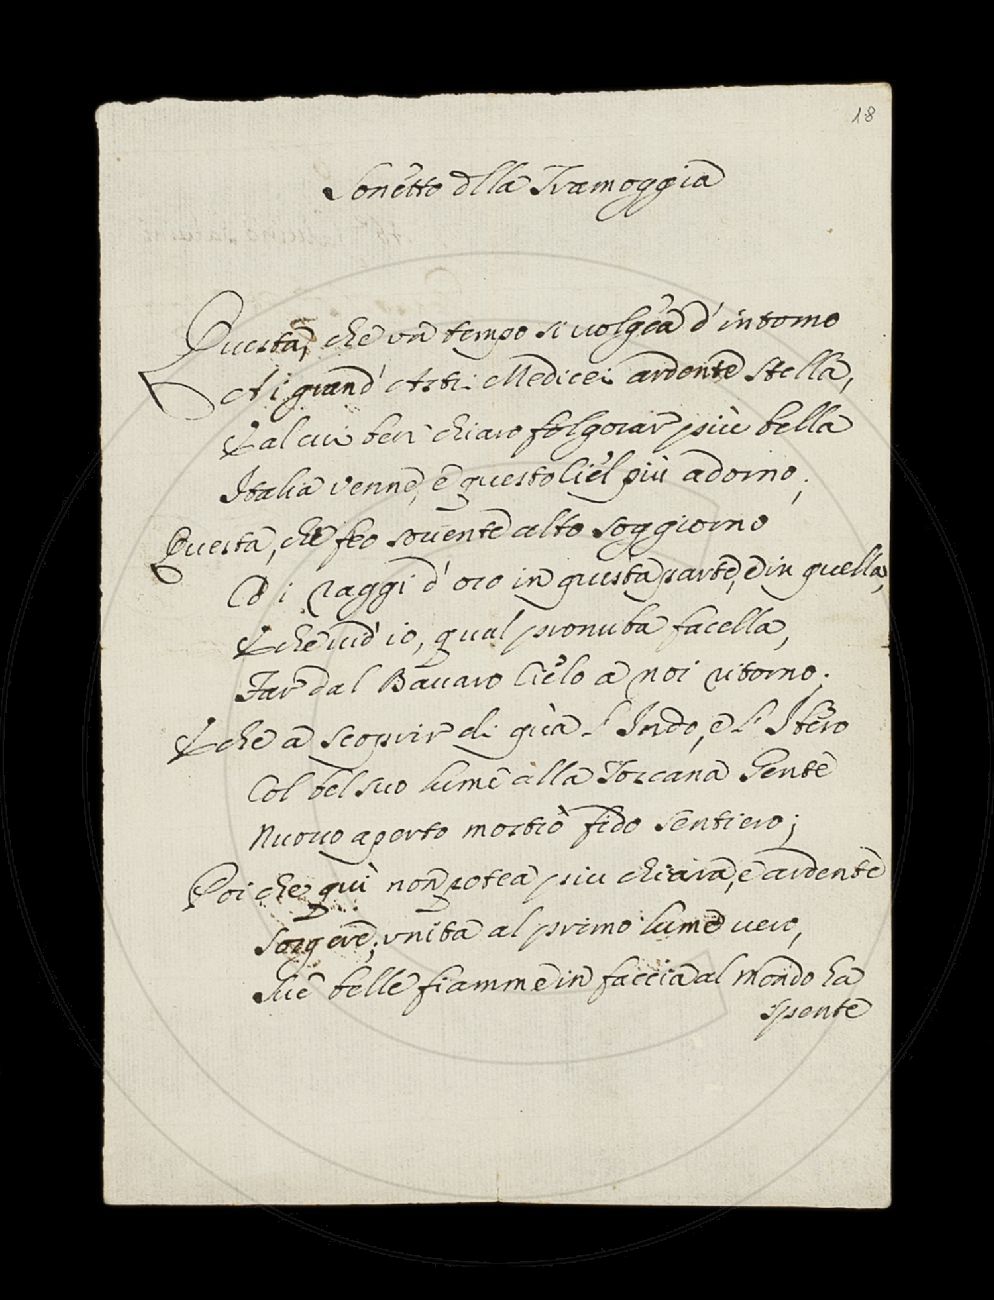 18
Sonetto dlla Tramoggia
Questa, che un tempo si uolgea d'intorno
Ai grand' Astri Medicei ardente stella,
E al cui ben chiaro folgorar più bella
Italia venne, e questo Ciel più adorno;
Questa, che feo souente alto soggiorno
Co i raggi d'oro in questa parte, e in quella,
E che uid' io, qual pronuba facella,
Far dal Bauaro Cielo a noi ritorno;
E che a scoprir di già l'Indo, e l'Ibero
Col bel suo lume alla Toscana Gente
Nuouo aperto mostrò fido sentiero;
Poi che quì non potea piu chiara, e ardente
Sorgere, unita al primo lume uero,
Sue belle fiamme in faccia al mondo ha
spente